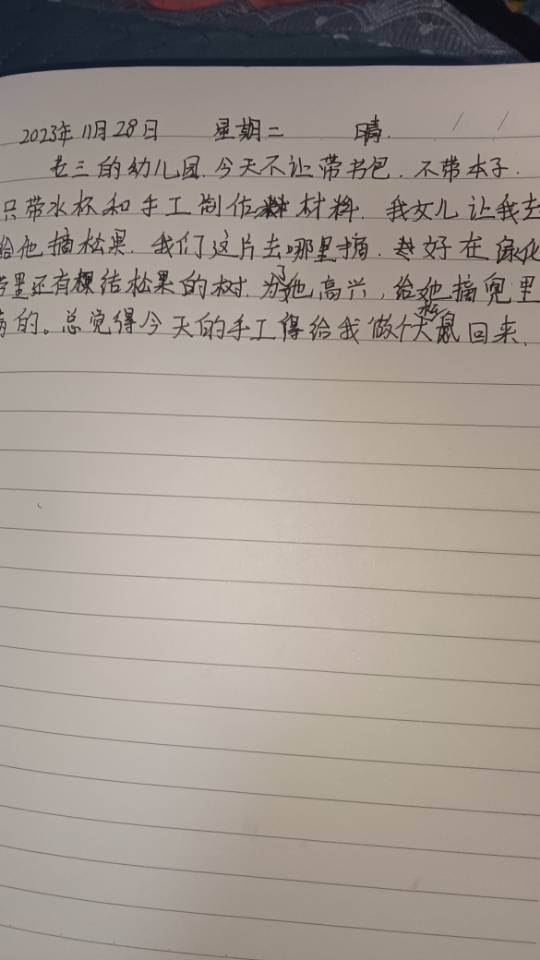 2023年11月28日 星期二 晴.
老三的幼儿园.今天不让带书包.不带本子.
只带水杯和手工制作材料.我女儿让我去
给他摘松果.我们这片去哪里摘.好在绿化
带里还有棵结松果的树.为了她高兴,给她摘兜里
满的。总觉得今天的手工得给我做个松鼠回来.